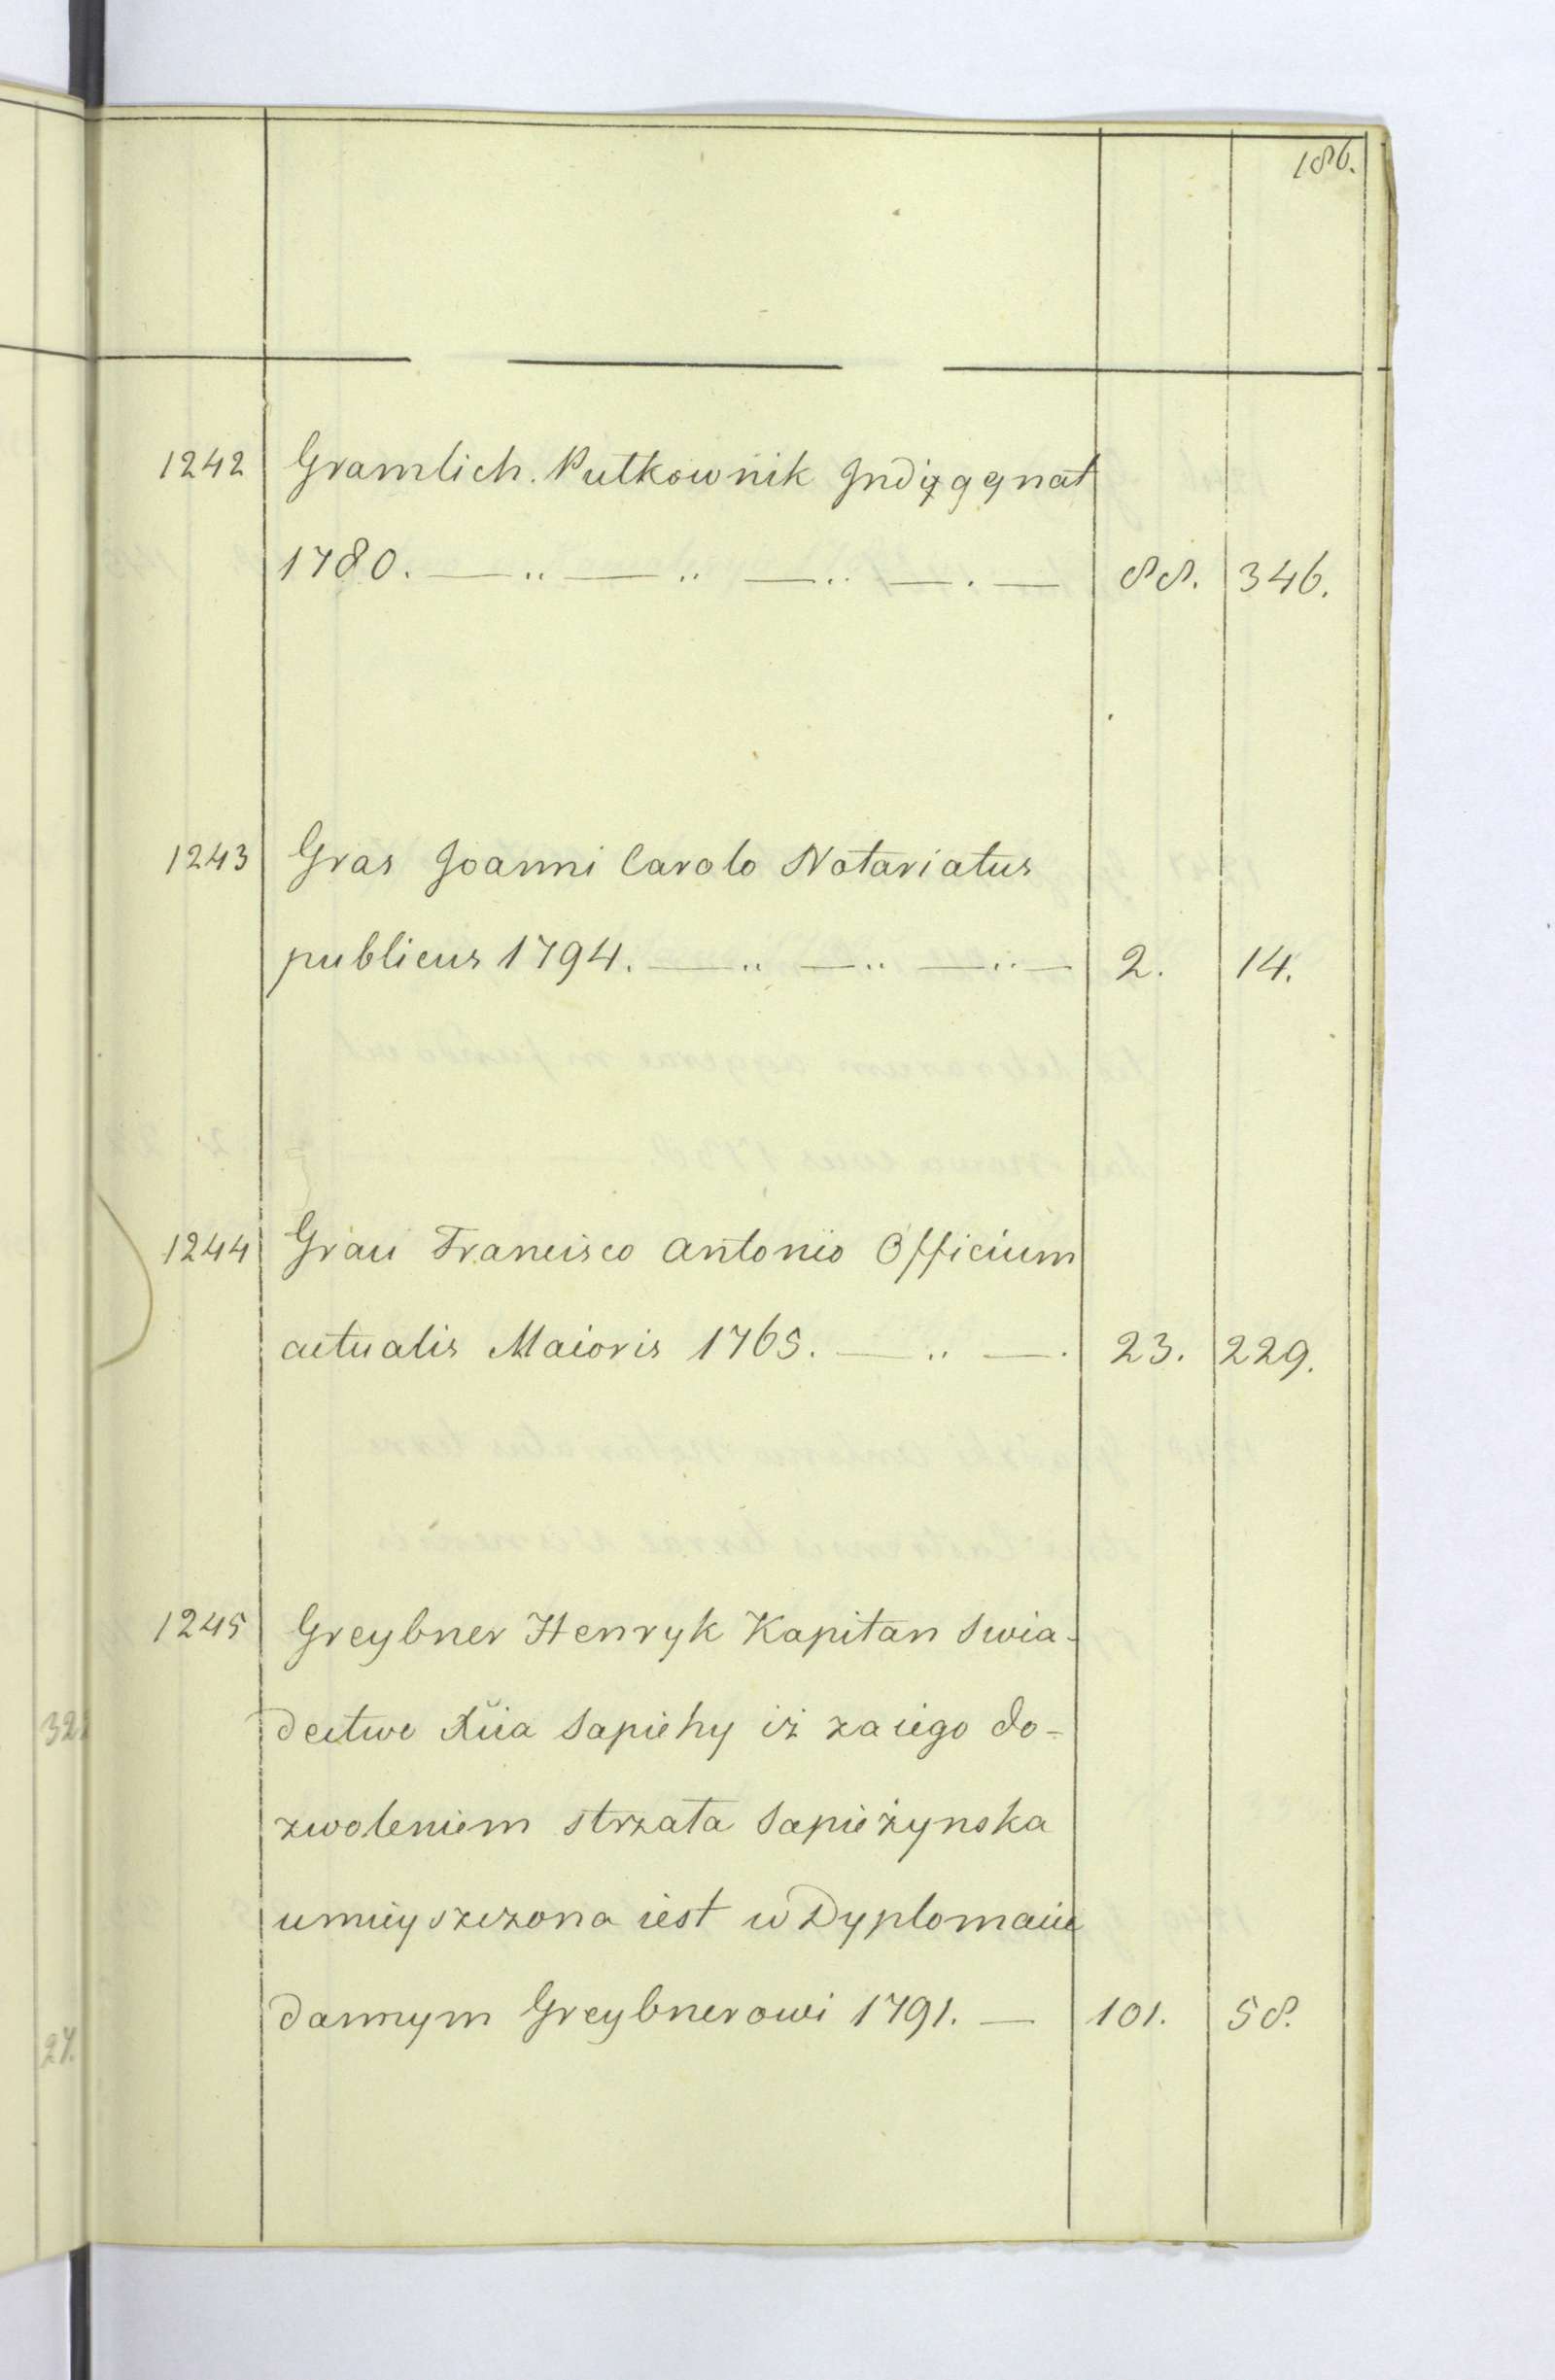 186.
1242 Gramlich. Pułkownik Jndigġnat
1780. — „ — „ — „ — . — 88. 346.
1243 Gras Joanni Carolo Notariatus
publicus 1794. — „ — „ — „ — 2. 14.
1244 Grau Francisco Antonio Officium
actualis Maioris 1765. — „ — . 23. 229.
1245 Greybner Henryk Kapitan swia-
dectwo Xcia Sapiehy iż za iego do-
zwoleniem strzała Sapieżynska
umieyszczona iest w Dyplomacie
dannym Greybnerowi 1791. — 101. 58.
32
27.